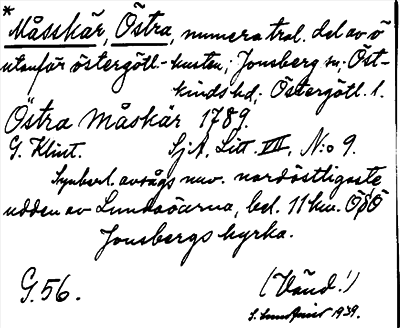 * Måsskär, Östra, numera tral. del av ö
utanför östergötl. kusten, Jonsberg sn, Öst-
kinds hd, Östergötl. l.
Östra Måskär 1789.
G. Klint. SjA, Litt. III, N:o 9.
Synberl. avsågs nuv. nordöstligaste
udden av Lundaöarna, bel. 11 km. OSO
Jonsbergs kyrka.
G. 56. (Vänd!)
1939.